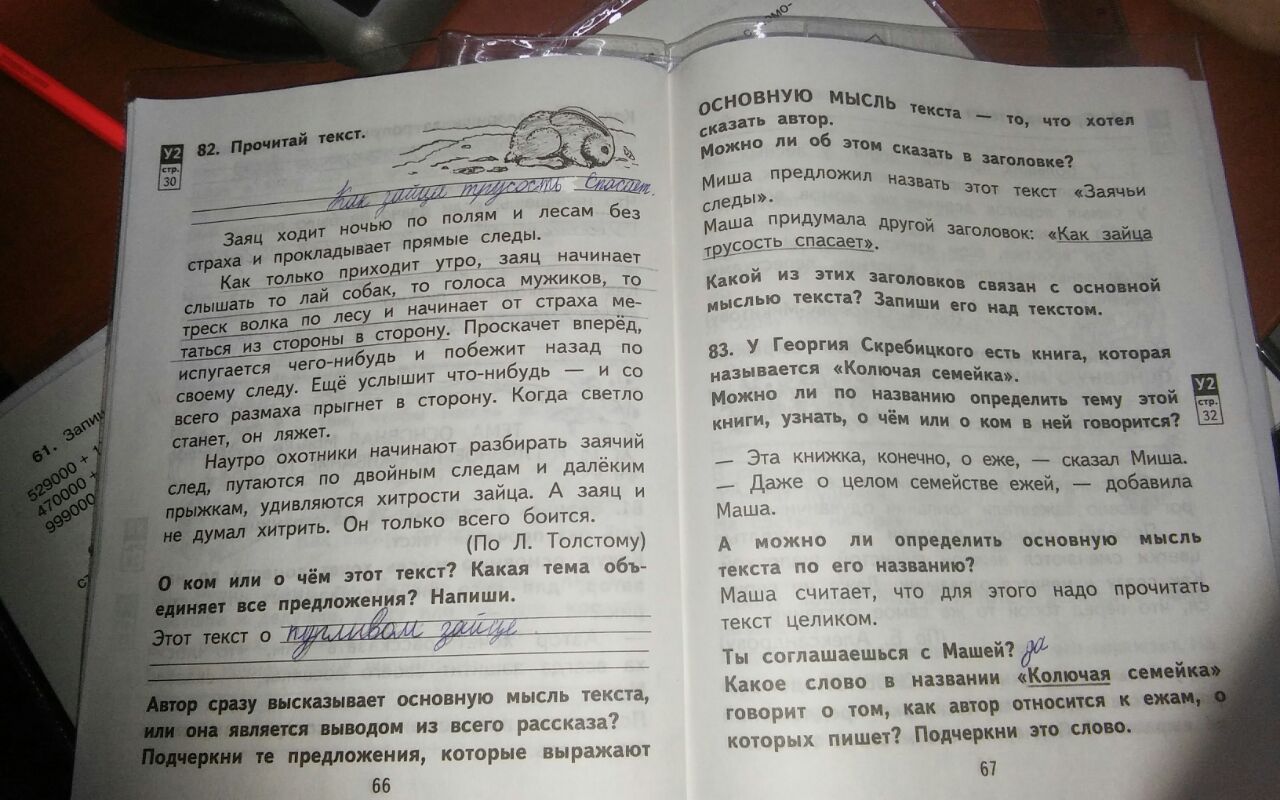 У2
стр.
30
82. Прочитай текст.
Как зайца трусость спасает.
Заяц ходит ночью по полям и лесам без
страха и прокладывает прямые следы.
Как только приходит утро, заяц начинает
слышать то лай собак, то голоса мужиков, то
треск волка по лесу и начинает от страха ме-
таться из стороны в сторону. Проскачет вперёд,
испугается чего-нибудь и побежит назад по
своему следу. Ещё услышит что-нибудь — и со
всего размаха прыгнет в сторону. Когда светло
станет, он ляжет.
Наутро охотники начинают разбирать заячий
след, путаются по двойным следам и далёким
прыжкам, удивляются хитрости зайца. А заяц и
не думал хитрить. Он только всего боится.
(По Л. Толстому)
О ком или о чём этот текст? Какая тема объ-
единяет все предложения? Напиши.
Этот текст о пугливом зайце
Автор сразу высказывает основную мысль текста,
или она является выводом из всего рассказа?
Подчеркни те предложения, которые выражают
66
ОСНОВНУЮ МЫСЛЬ текста — то, что хотел
сказать автор.
Можно ли об этом сказать в заголовке?
Миша предложил назвать этот текст «Заячьи
следы».
Маша придумала другой заголовок: «Как зайца
трусость спасает».
Какой из этих заголовков связан с основной
мыслью текста? Запиши его над текстом.
83. У Георгия Скребицкого есть книга, которая
называется «Колючая семейка».
Можно ли по названию определить тему этой
книги, узнать, о чём или о ком в ней говорится?
У2
стр.
32
— Эта книжка, конечно, о еже, — сказал Миша.
— Даже о целом семействе ежей, — добавила
Маша.
А можно ли определить основную мысль
текста по его названию?
Маша считает, что для этого надо прочитать
текст целиком.
Ты соглашаешься с Машей? да
Какое слово в названии «Колючая семейка»
говорит о том, как автор относится к ежам, о
которых пишет? Подчеркни это слово.
67
61. Запи
529000 + 1
470000 +
999000